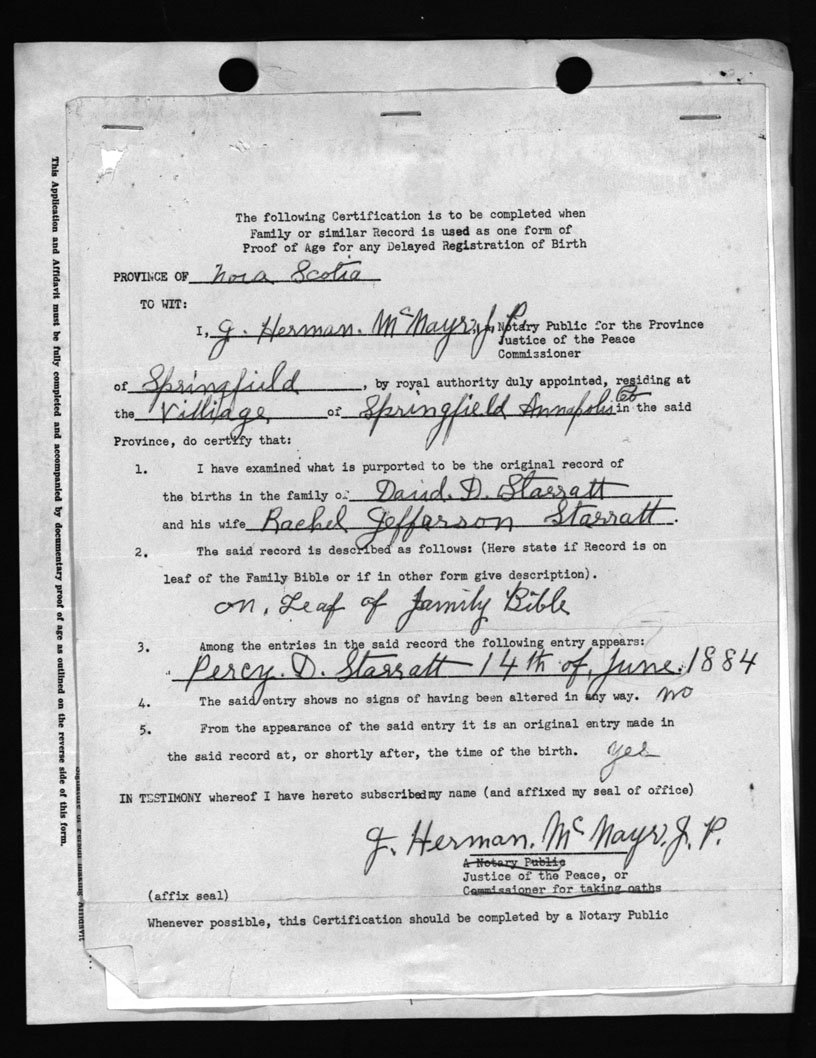 The following Certification is to be completed when
Family or similar Record is used as one form of
Proof of Age for any Delayed Registration of Birth
PROVINCE OF Nova Scotia
TO WIT:
I, J. Herman. Mc Nayr, J P. Notary Public for the Province
Justice of the Peace
Commissioner
of Springfield, by royal authority duly appointed, residing at
the Villiage of Springfield Annapolis Co in the said
Province, do certify that:
1. I have examined what is purported to be the original record of
the births in the family of David. D. Starratt
and his wife Rachel Jefferson Starratt.
2. The said record is described as follows: (Here state if Record is on
leaf of the Family Bible or if in other form give description).
on. Leaf of family Bible
3. Among the entries in the said record the following entry appears:
Percy. D. Starratt 14th of. June. 1884
4. The said entry shows no signs of having been altered in any way. no
5. From the appearance of the said entry it is an original entry made in
the said record at, or shortly after, the time of the birth. yes
IN TESTIMONY whereof I have hereto subscribed my name (and affixed my seal of office)
J. Herman. Mc Nayr. J. P.
A Notary Public
Justice of the Peace, or
(affix seal) Commissioner for taking oaths
Whenever possible, this Certification should be completed by a Notary Public
This Application and Affidavit must be fully completed and accompanied by documentary proof of age as outlined on the reverse side of this form.
Signature of Person making Affidavit